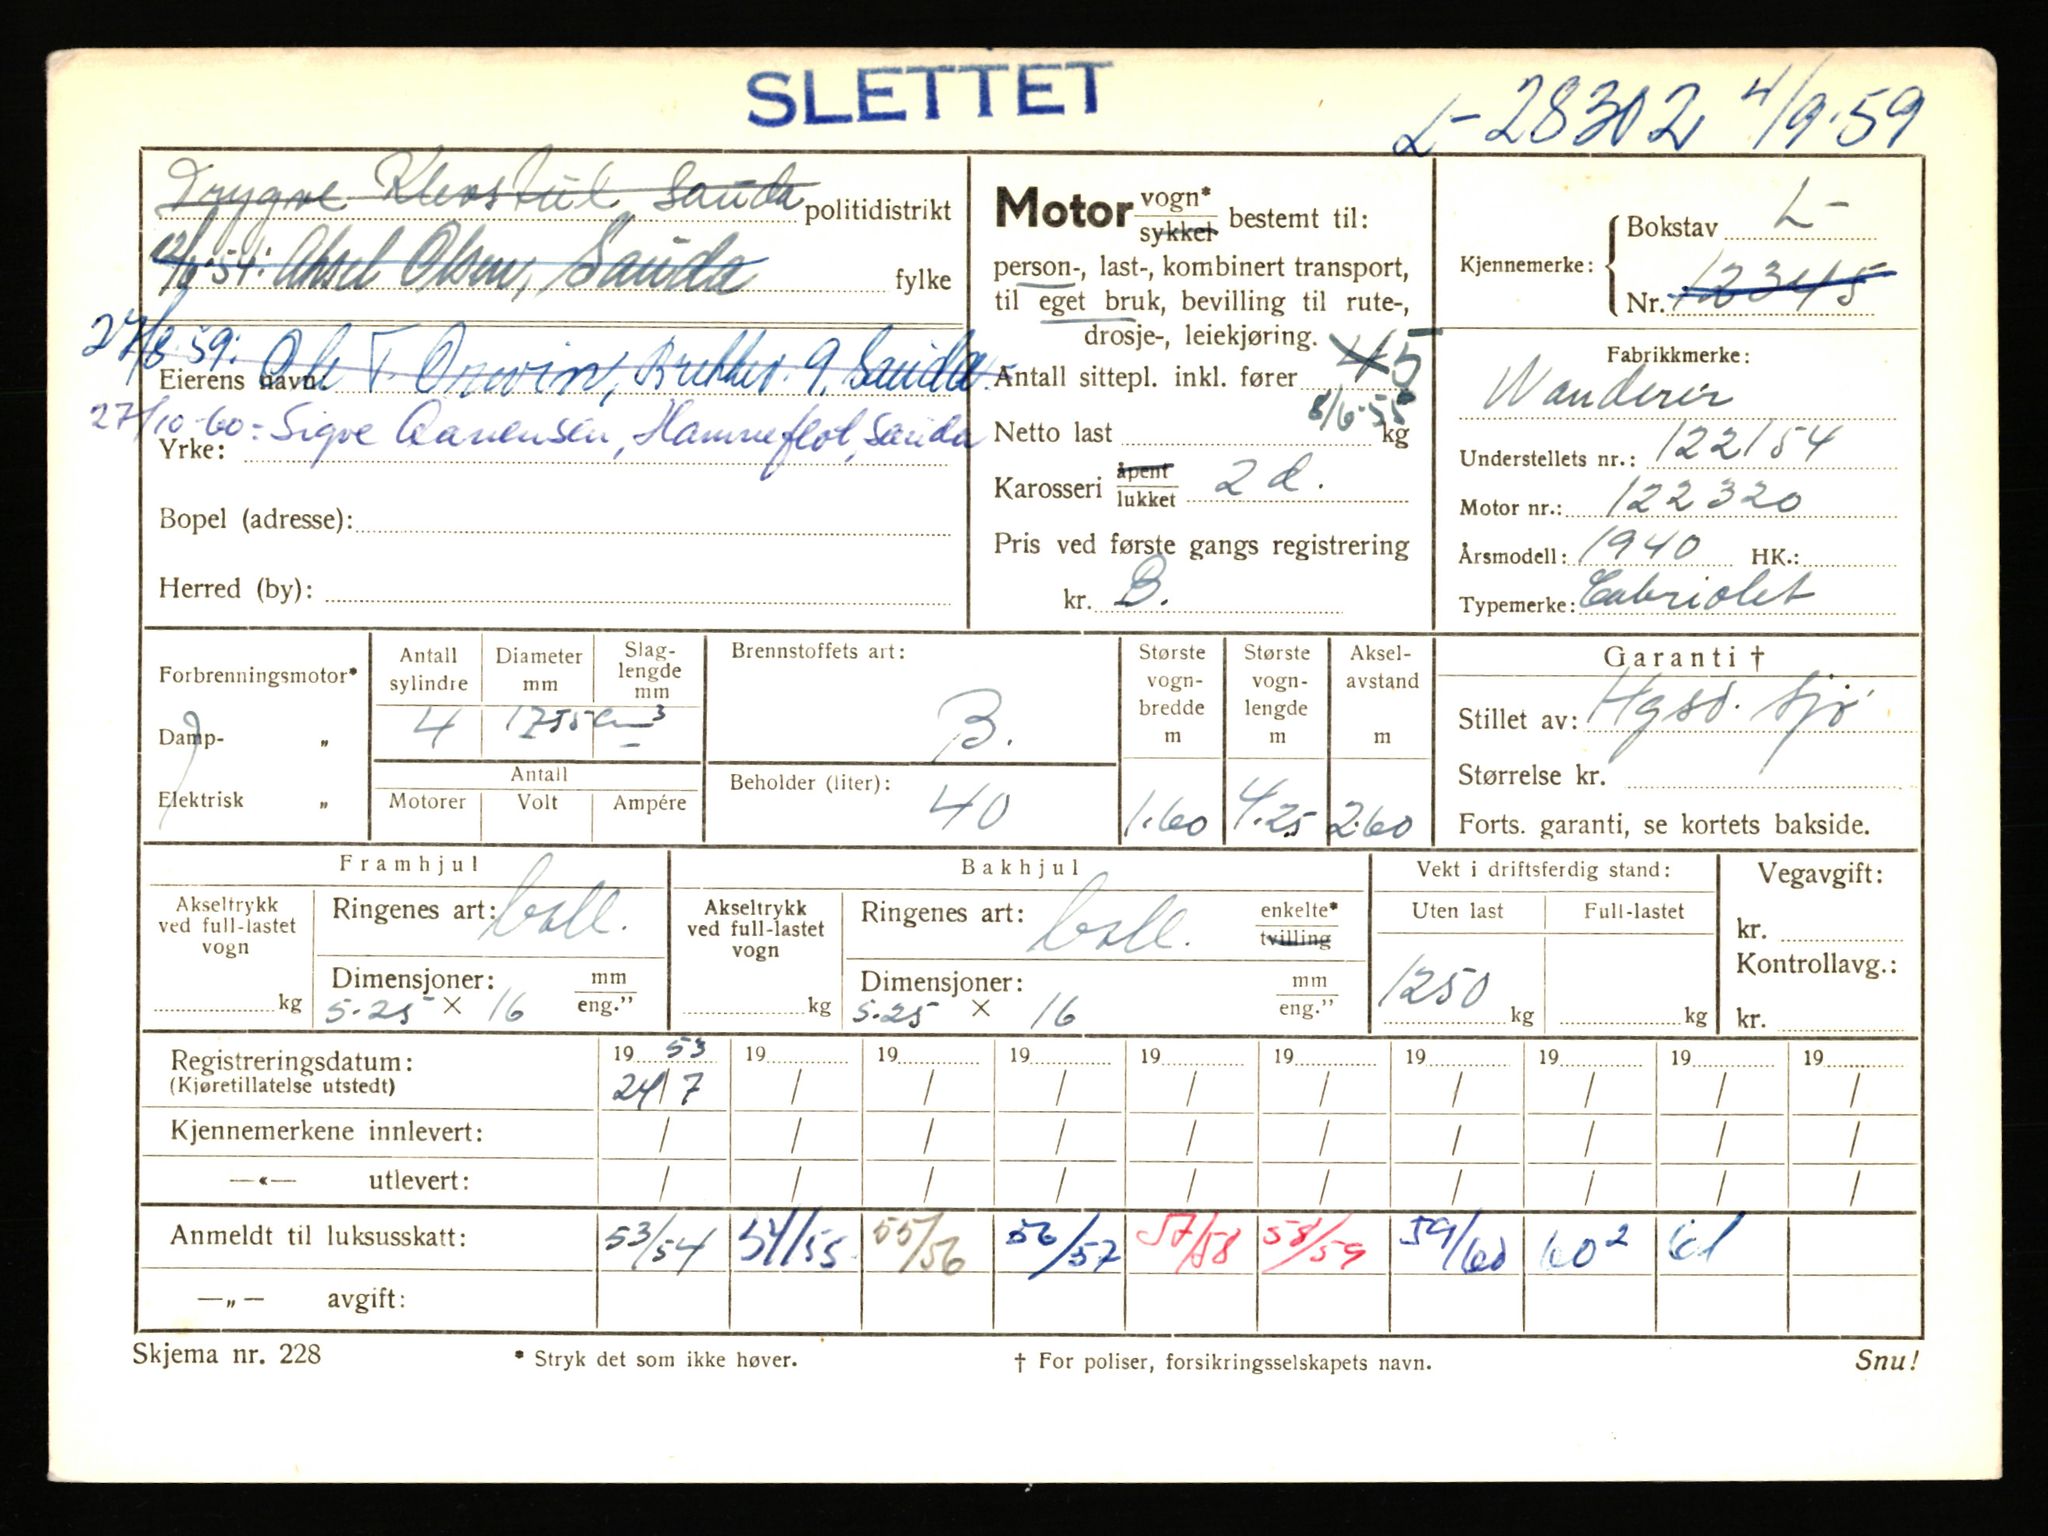 SLETTET
L-28302 4/9-59
Trygve Klevstul Sauda politidistrikt
12/6-54: Aksel Olsen, Sauda fylke
27/8-59: Ole T. , 9, Sauda
Eierens navn:
27/10-60: Sigve Aanensen, Hammeflot, Sauda
Yrke:
Bopel (adresse):
Herred (by):
Motor vogn* sykkel bestemt til:
person-, last-, kombinert transport,
til eget bruk, bevilling til rute-,
drosje-, leiekjøring.
Antall sittepl. inkl. fører 4 5
8/6-55
Netto last kg
Karosseri åpent lukket 2 d.
Pris ved første gangs registrering
kr. B.
Kjennemerke: Bokstav L-
Nr. 12345
Fabrikkmerke:
Wanderer
Understellets nr.: 122154
Motor nr.: 122320
Årsmodell: 1940 HK.:
Typemerke: Cabriolet
Forbrenningsmotor*
Damp- „
Elektrisk „
Antall sylindre
Diameter mm
Slaglengde mm
4 1755 cm³
Antall
Motorer Volt Ampére
Brennstoffets art:
B.
Beholder (liter):
40
Største vogn-bredde m
1.60
Største vogn-lengde m
4.25
Aksel-avstand m
2.60
Garanti †
Stillet av: Hgsd. Sjø
Størrelse kr.
Forts. garanti, se kortets bakside.
Framhjul
Akseltrykk ved full-lastet vogn
kg
Ringenes art: ball.
Dimensjoner: mm
5.25 × 16 eng."
Bakhjul
Akseltrykk ved full-lastet vogn
kg
Ringenes art: ball. enkelte* tvilling
Dimensjoner: mm
5.25 × 16 eng."
Vekt i driftsferdig stand:
Uten last Full-lastet
1250 kg kg
Vegavgift:
kr.
Kontrollavg.:
kr.
Registreringsdatum: 19 53 19 19 19 19 19 19 19 19 19
(Kjøretillatelse utstedt) 24/7 / / / / / / / / /
Kjennemerkene innlevert: / / / / / / / / / /
—«— utlevert: / / / / / / / / / /
Anmeldt til luksusskatt: 53/54 54/55 55/56 56/57 57/58 58/59 59/60 60² 61
—„— avgift:
Skjema nr. 228 * Stryk det som ikke høver. † For poliser, forsikringsselskapets navn. Snu!